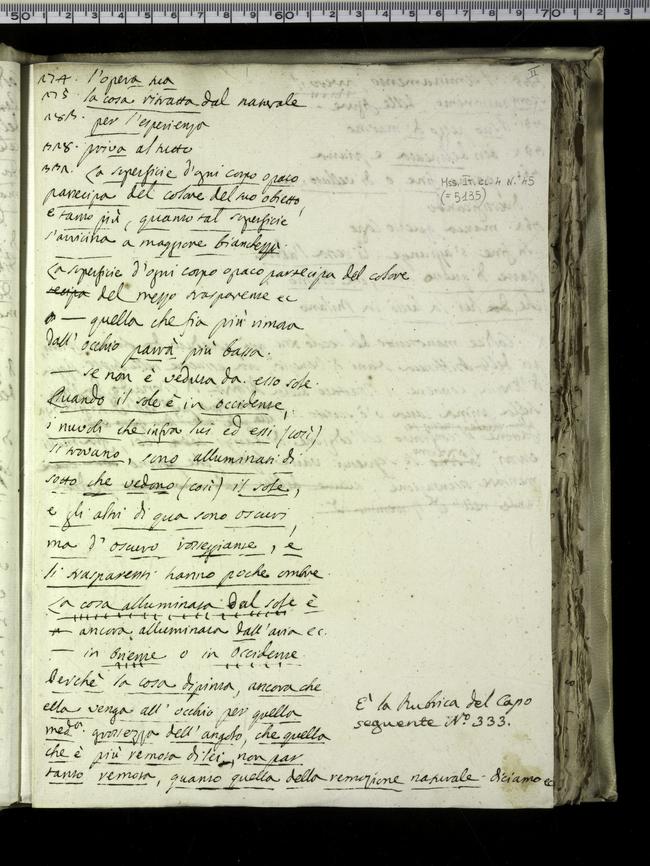 II
274. l'opera tua
275. la cosa ritratta dal naturale
per l'esperienza
328. priva al tutto
La superficie d'ogni corpo opaco
partecipa del colore del suo obietto,
e tanto più, quanto tal superficie
s'avvicina a maggiore bianchezza.
Mss. It. cl. 4 N.° 45
(= 5135)
La superficie d'ogni corpo opaco partecipa del colore
del mezzo trasparente ec
— quella che fia più rimota
dall' occhio parrà più bassa.
— se non è veduta da esso sole.
Quando il sole è in occidente,
i nuvoli che infra lui ed essi (così)
si trovano, sono alluminati di
sotto che vedono (così) il sole,
e gli altri di qua sono oscuri,
ma d' oscuro rosseggiante, e
li trasparenti hanno poche ombre
La cosa alluminata dal sole è
— ancora alluminata dall'aria ec.
— in oriente o in occidente
Perchè la cosa dipinta, ancora che
ella venga all' occhio per quella
med.ª grossezza dell'angolo, che quella
che è più remota di lei, non par
tanto remota, quanto quella della remozione naturale - diciamo ec
E' la Rubrica del Capo
seguente N.° 333.